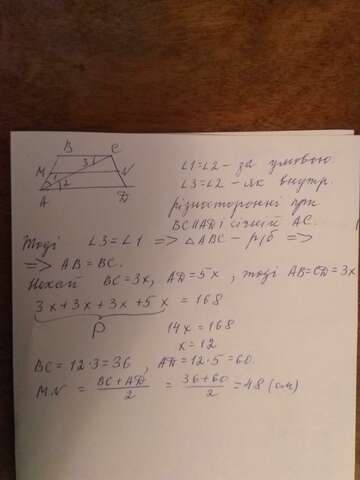 B C
3
M 1 N
2
A D
∠1=∠2 – за умовою.
∠3=∠2 – як внутр.
різносторонні при
BC∥AD і січній AC.
Тоді ∠3=∠1 => △ABC – р/б =>
=> AB=BC.
Нехай BC=3x, AD=5x, тоді AB=CD=3x
3x+3x+3x+5x=168
P
14x=168
x=12
BC=12·3=36, AD=12·5=60.
MN = (BC+AD)/2 = (36+60)/2 = 48 (см)